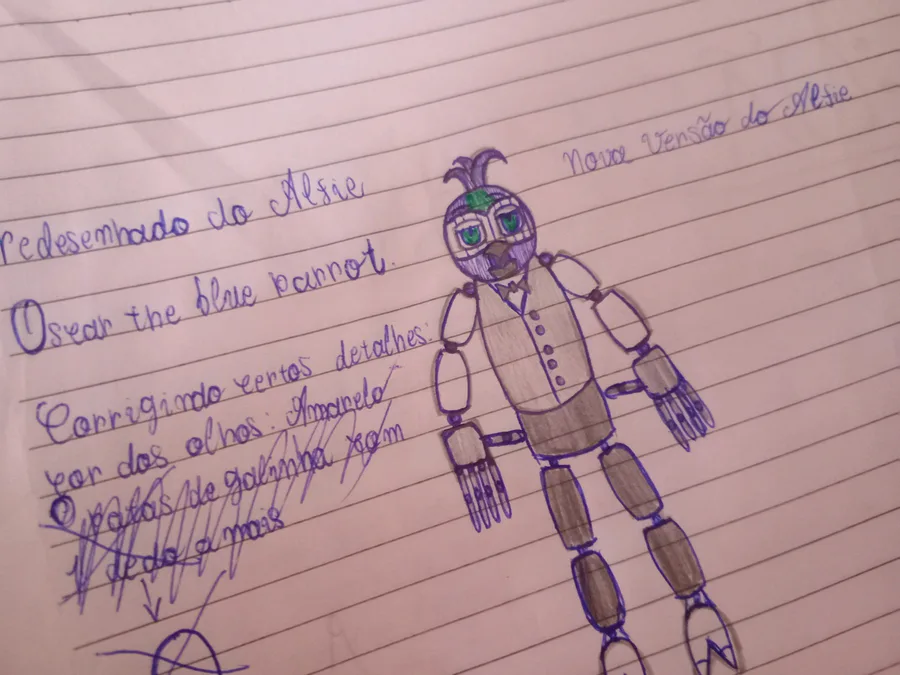 Nova Versão do Alfie
redesenhado do Alfie
Oscar the blue parrot.
Corrigindo certos detalhes:
cor dos olhos: Amarelo
patas de galinha com
1 dedo a mais